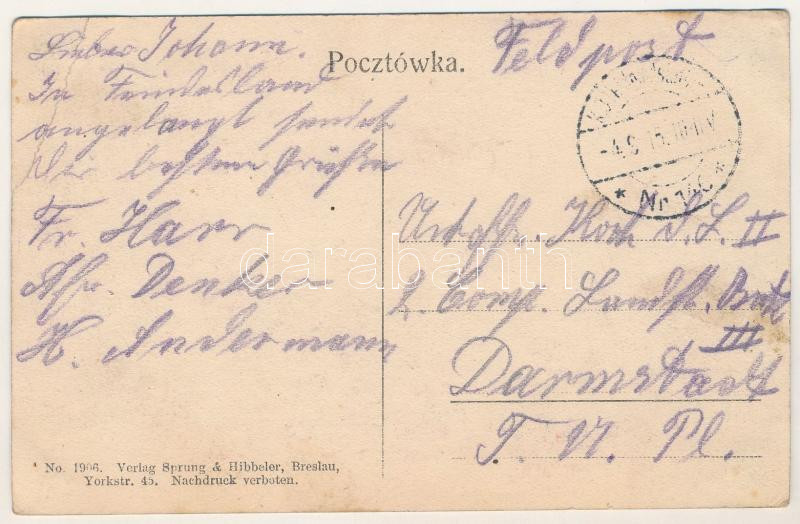 Lieber Johann.
In Feindesland
angelangt sendet
dir besten Grüße
Fr. Harr
Denker
H. Andermann
Pocztówka.
Feldpost
-4.9.15.
* Nr 146 *
Koch II
2 Comp. Landst.
III
Darmstadt
T. Pl.
No. 1906. Verlag Sprung & Hibbeler, Breslau,
Yorkstr. 45. Nachdruck verboten.
darabanth